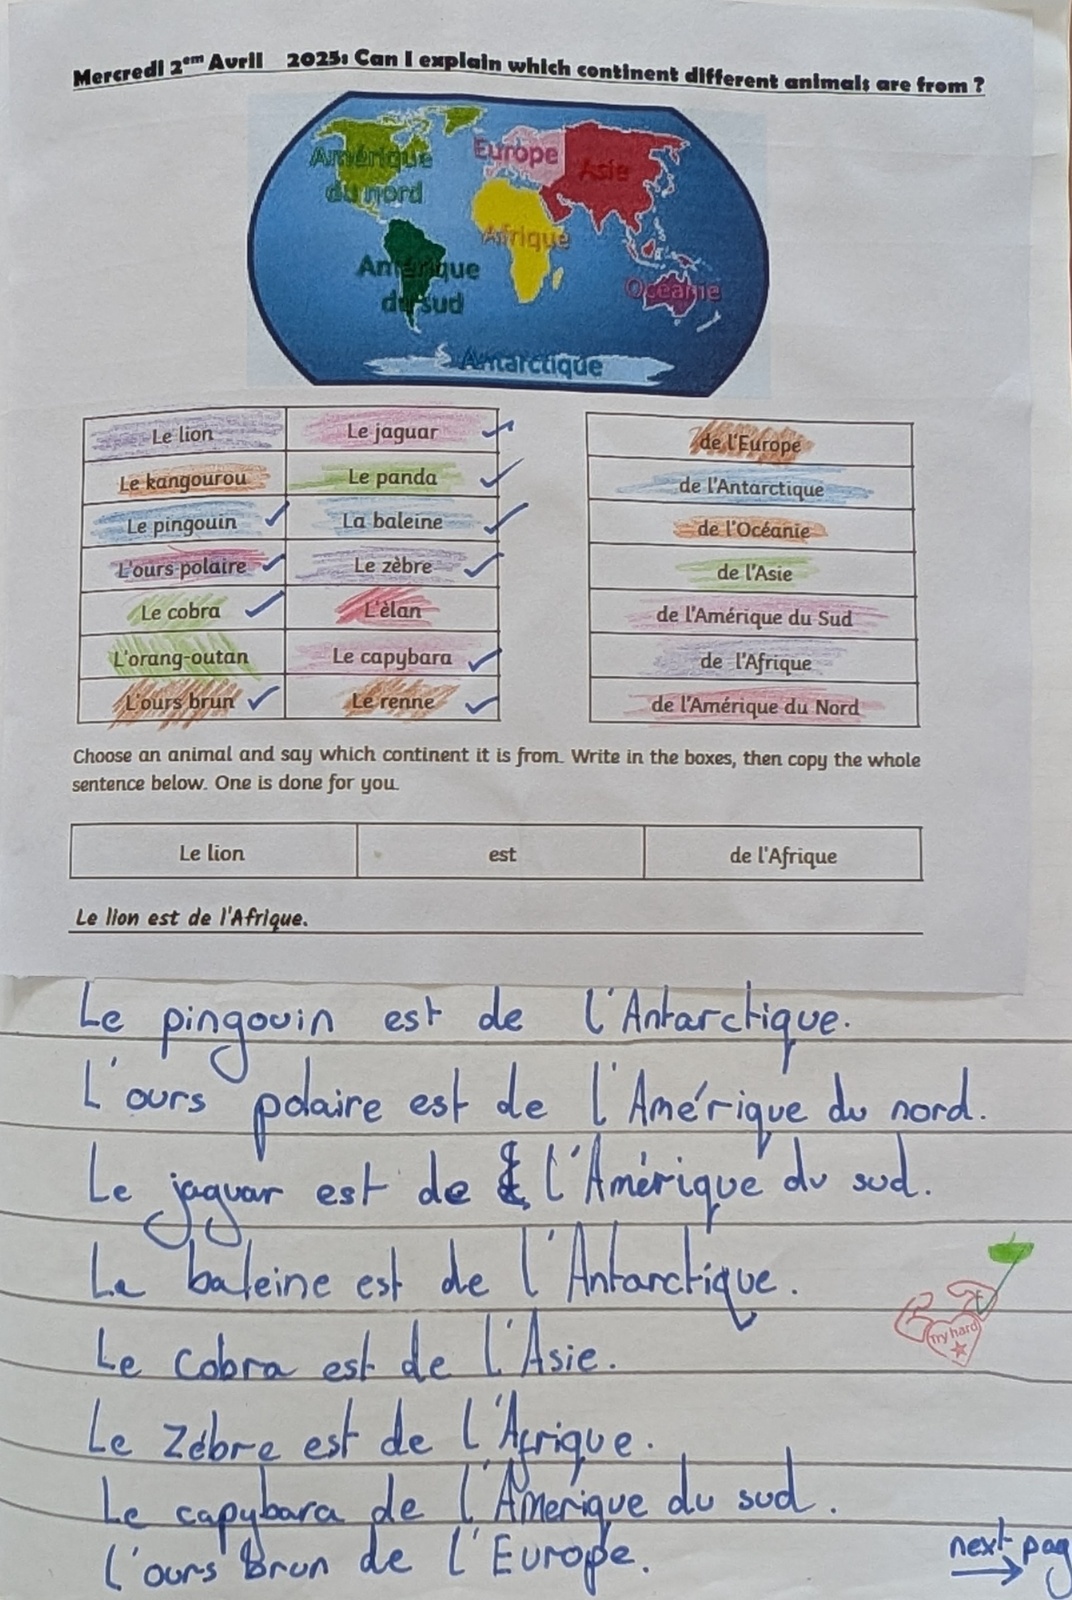 Mercredi 2em Avril 2025: Can I explain which continent different animals are from ?
Amérique du nord
Europe
Asie
Afrique
Amérique du sud
Océanie
Antarctique
Le lion Le jaguar
Le kangourou Le panda
Le pingouin La baleine
L'ours polaire Le zèbre
Le cobra L'èlan
L'orang-outan Le capybara
L'ours brun Le renne
de l'Europe
de l'Antarctique
de l'Océanie
de l'Asie
de l'Amérique du Sud
de l'Afrique
de l'Amérique du Nord
Choose an animal and say which continent it is from. Write in the boxes, then copy the whole
sentence below. One is done for you.
Le lion est de l'Afrique
Le lion est de l'Afrique.
Le pingouin est de l'Antarctique.
L'ours polaire est de l'Amérique du nord.
Le jaguar est de l'Amérique du sud.
La baleine est de l'Antarctique.
Try hard
Le cobra est de l'Asie.
Le zébre est de l'Afrique.
Le capybara de l'Amerique du sud.
L'ours brun de l'Europe.
next pag